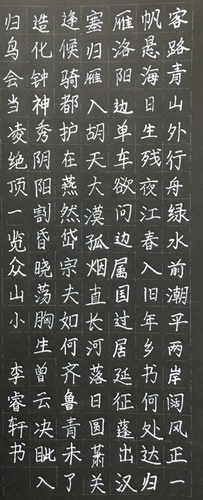 客路青山外行舟绿水前潮平两岸阔风正一
帆悬海日生残夜江春入旧年乡书何处达归
雁洛阳边单车欲问边属国过居延征蓬出汉
塞归雁入胡天大漠孤烟直长河落日圆萧关
逢候骑都护在燕然岱宗夫如何齐鲁青未了
造化钟神秀阴阳割昏晓荡胸生曾云决眦入
归鸟会当凌绝顶一览众山小 李睿轩书